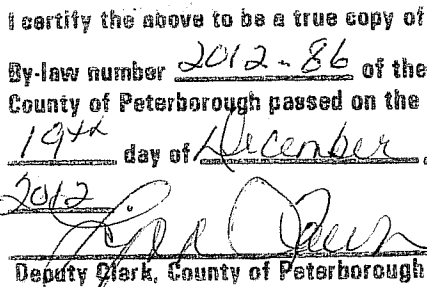 I certify the above to be a true copy of
By-law number 2012-86 of the
County of Peterborough passed on the
19th day of December,
2012
Deputy Clerk, County of Peterborough